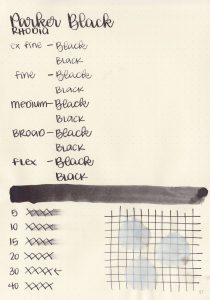 Parker Black
RHODIA
ex fine - Black
BLACK
fine - Black
BLACK
medium - Black
BLACK
BROAD - Black
BLACK
FLEX - Black
BLACK
5 xxxx
10 xxxx
15 xxxx
20 xxxx
30 xxxx ←
40 xxxx